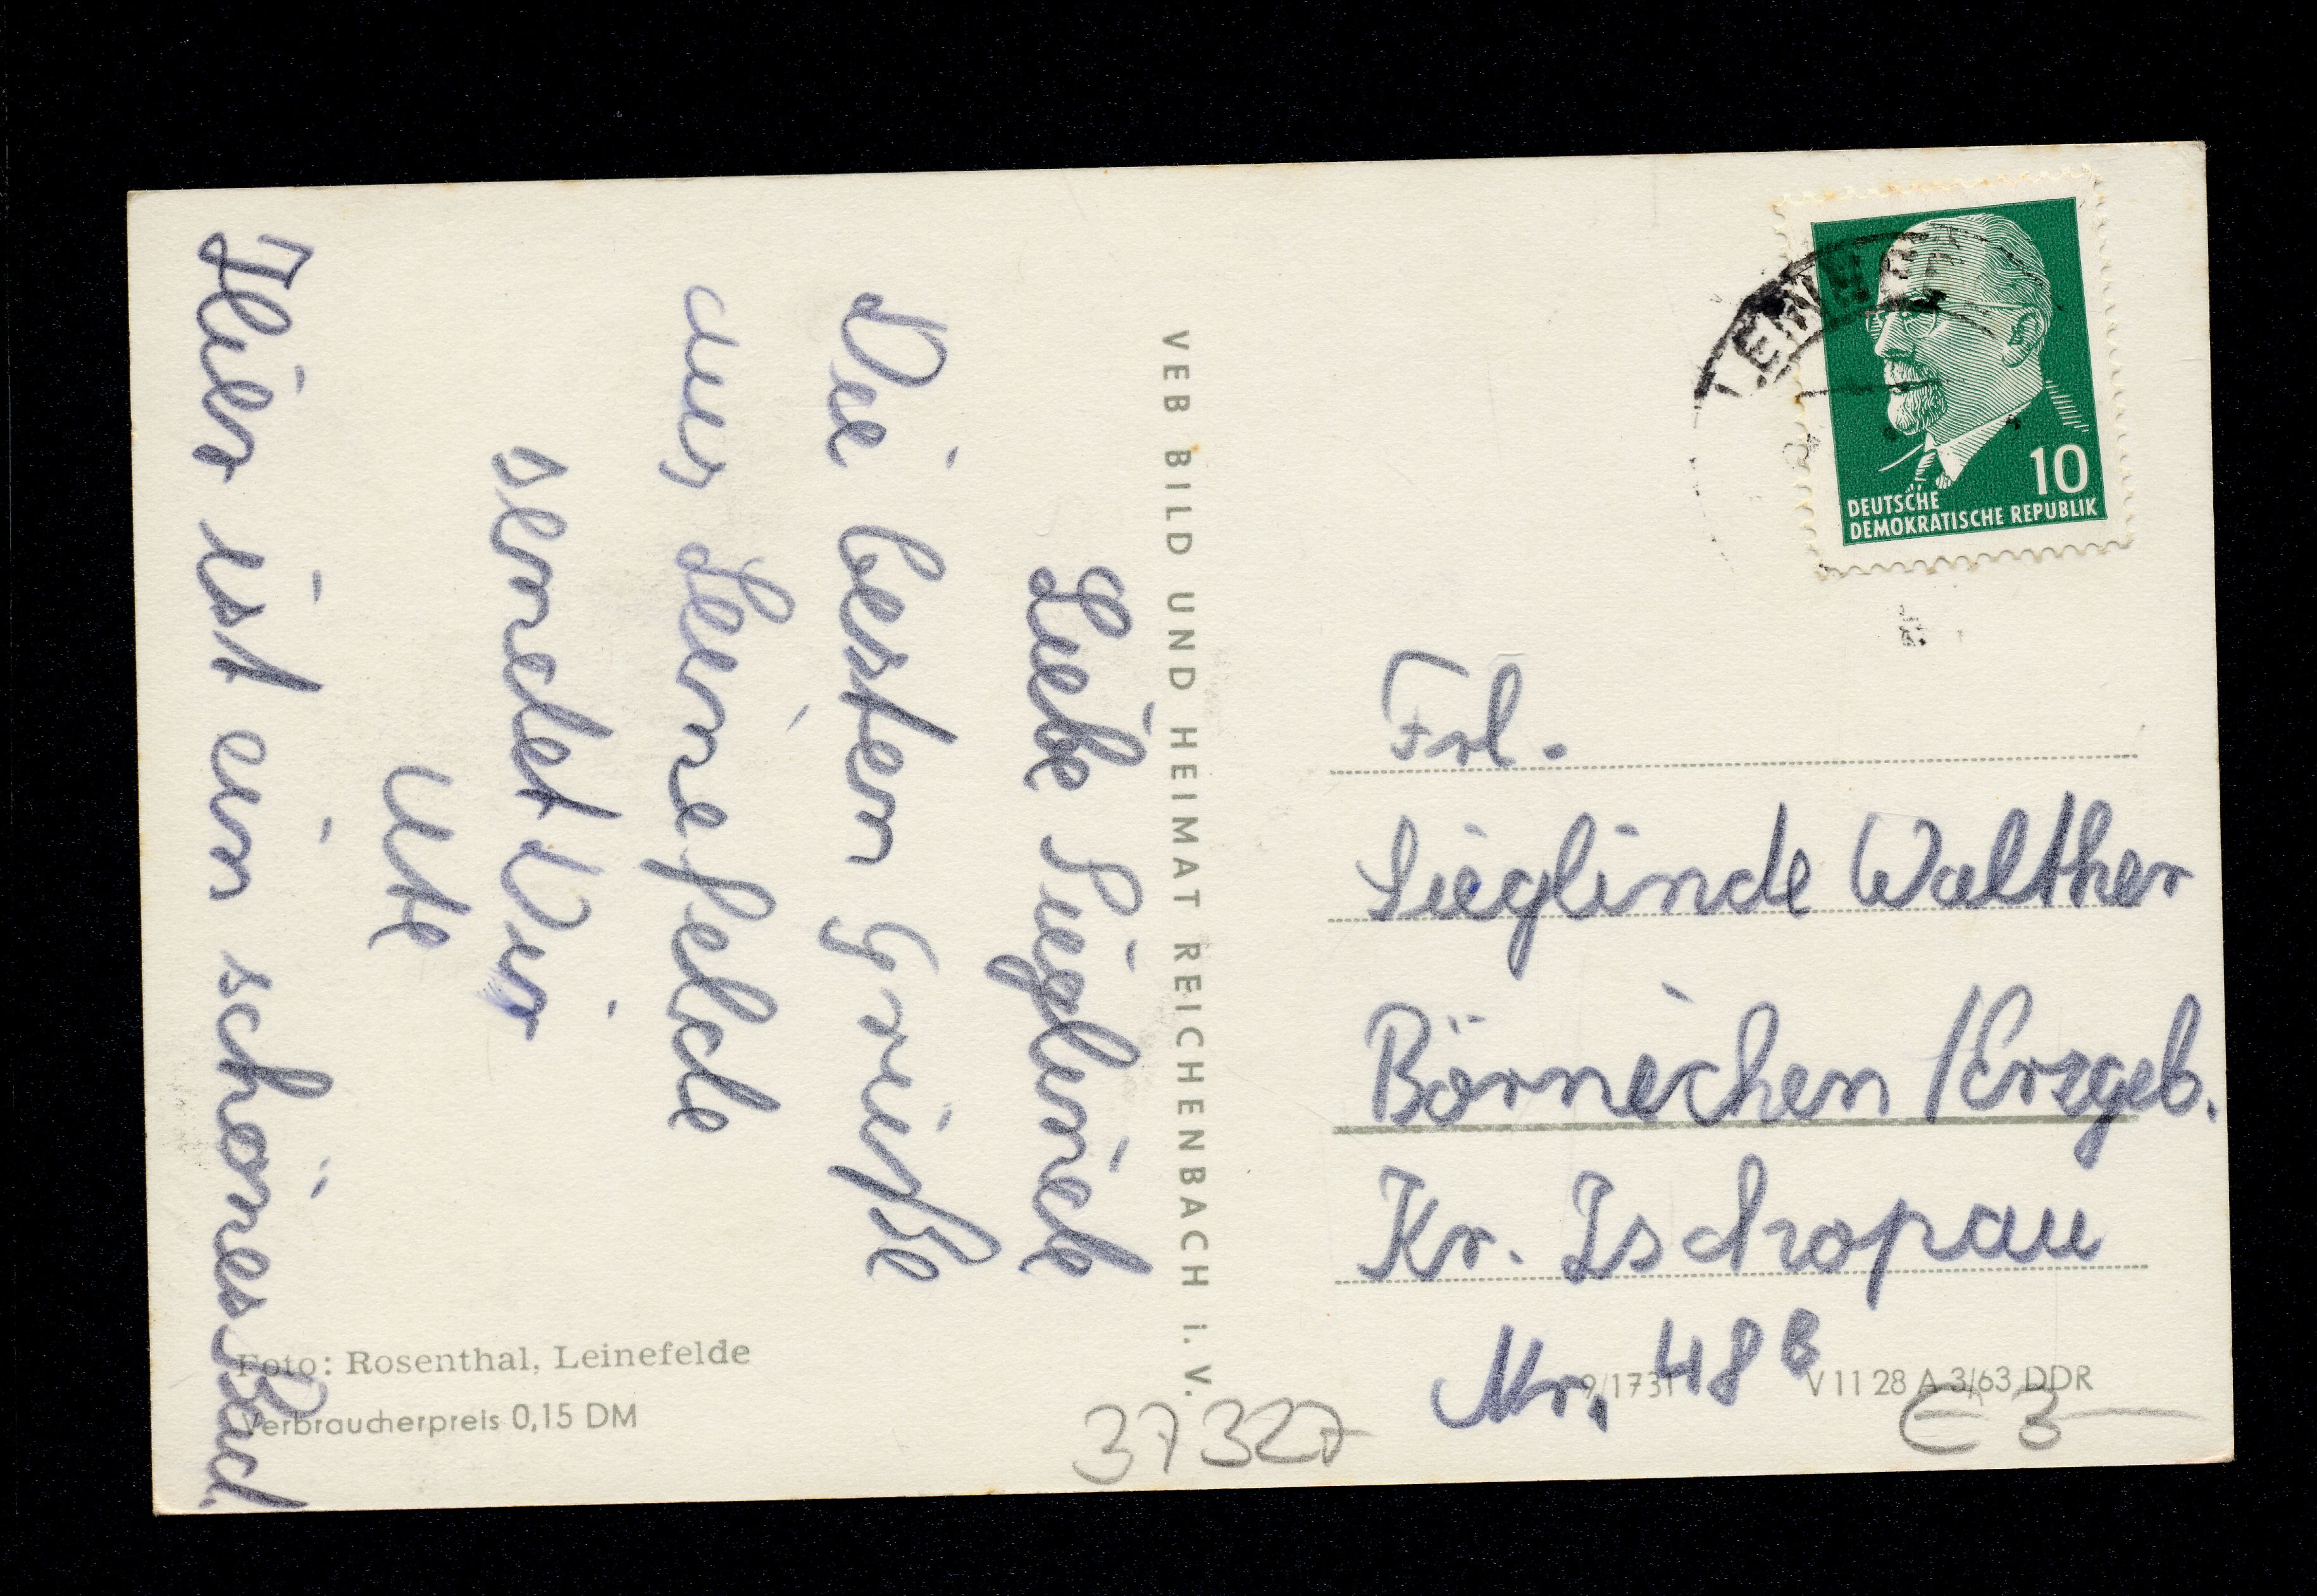 Liebe Sieglinde
Die besten Grüße
aus Leinefelde
sendet Dir
Ute
Hier ist ein schönes Bad.
VEB BILD UND HEIMAT REICHENBACH i. V.
Foto: Rosenthal, Leinefelde
Verbraucherpreis 0,15 DM
10
DEUTSCHE
DEMOKRATISCHE REPUBLIK
Frl.
Sieglinde Walther
Börnichen /Erzgeb.
Kr. Zschopau
Nr. 48 b
9/1731 V 11 28 A 3/63 DDR
37327
€ 3